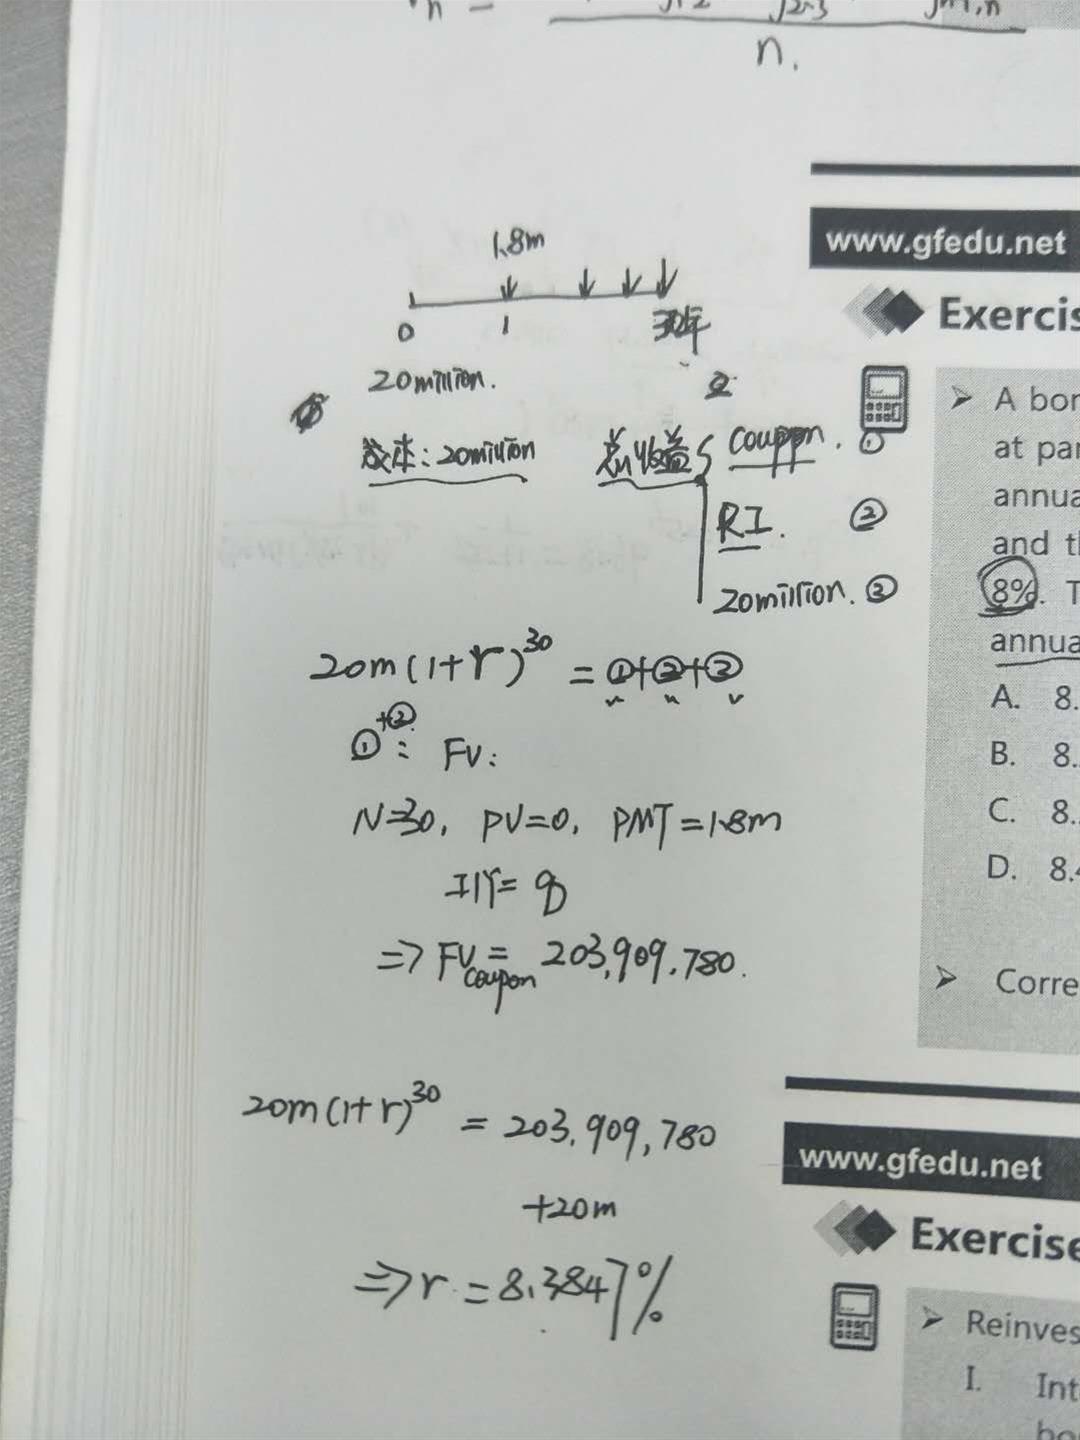 n.
1.8m
0 1 30年
20 million.
成本: 20 million 总收益 coupon. ①
RI. ②
20 million. ③
20m(1+r)^30 = ①+②+③
①+②: FV:
N=30, PV=0, PMT=1.8m
I/Y= 8
⇒ FV coupon = 203,909,780.
20m(1+r)^30 = 203,909,780
+20m
⇒ r = 8.3847%
www.gfedu.net
Exercis
➢ A bon
at par
annua
and th
8%. T
annua
A. 8.
B. 8.
C. 8.
D. 8.4
➢ Corre
www.gfedu.net
Exercise
➢ Reinves
I. Int
bo